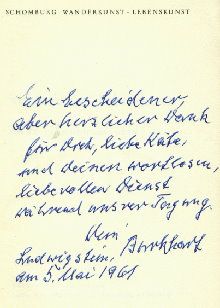 SCHOMBURG WANDERKUNST - LEBENSKUNST
Ein bescheidener,
aber herzlicher Dank
für Dich, liebe Käte,
und deinen wortlosen,
liebevollen Dienst
während unsrer Tagung.
Dein Burkhart
Ludwigstein,
am 5. Mai 1961